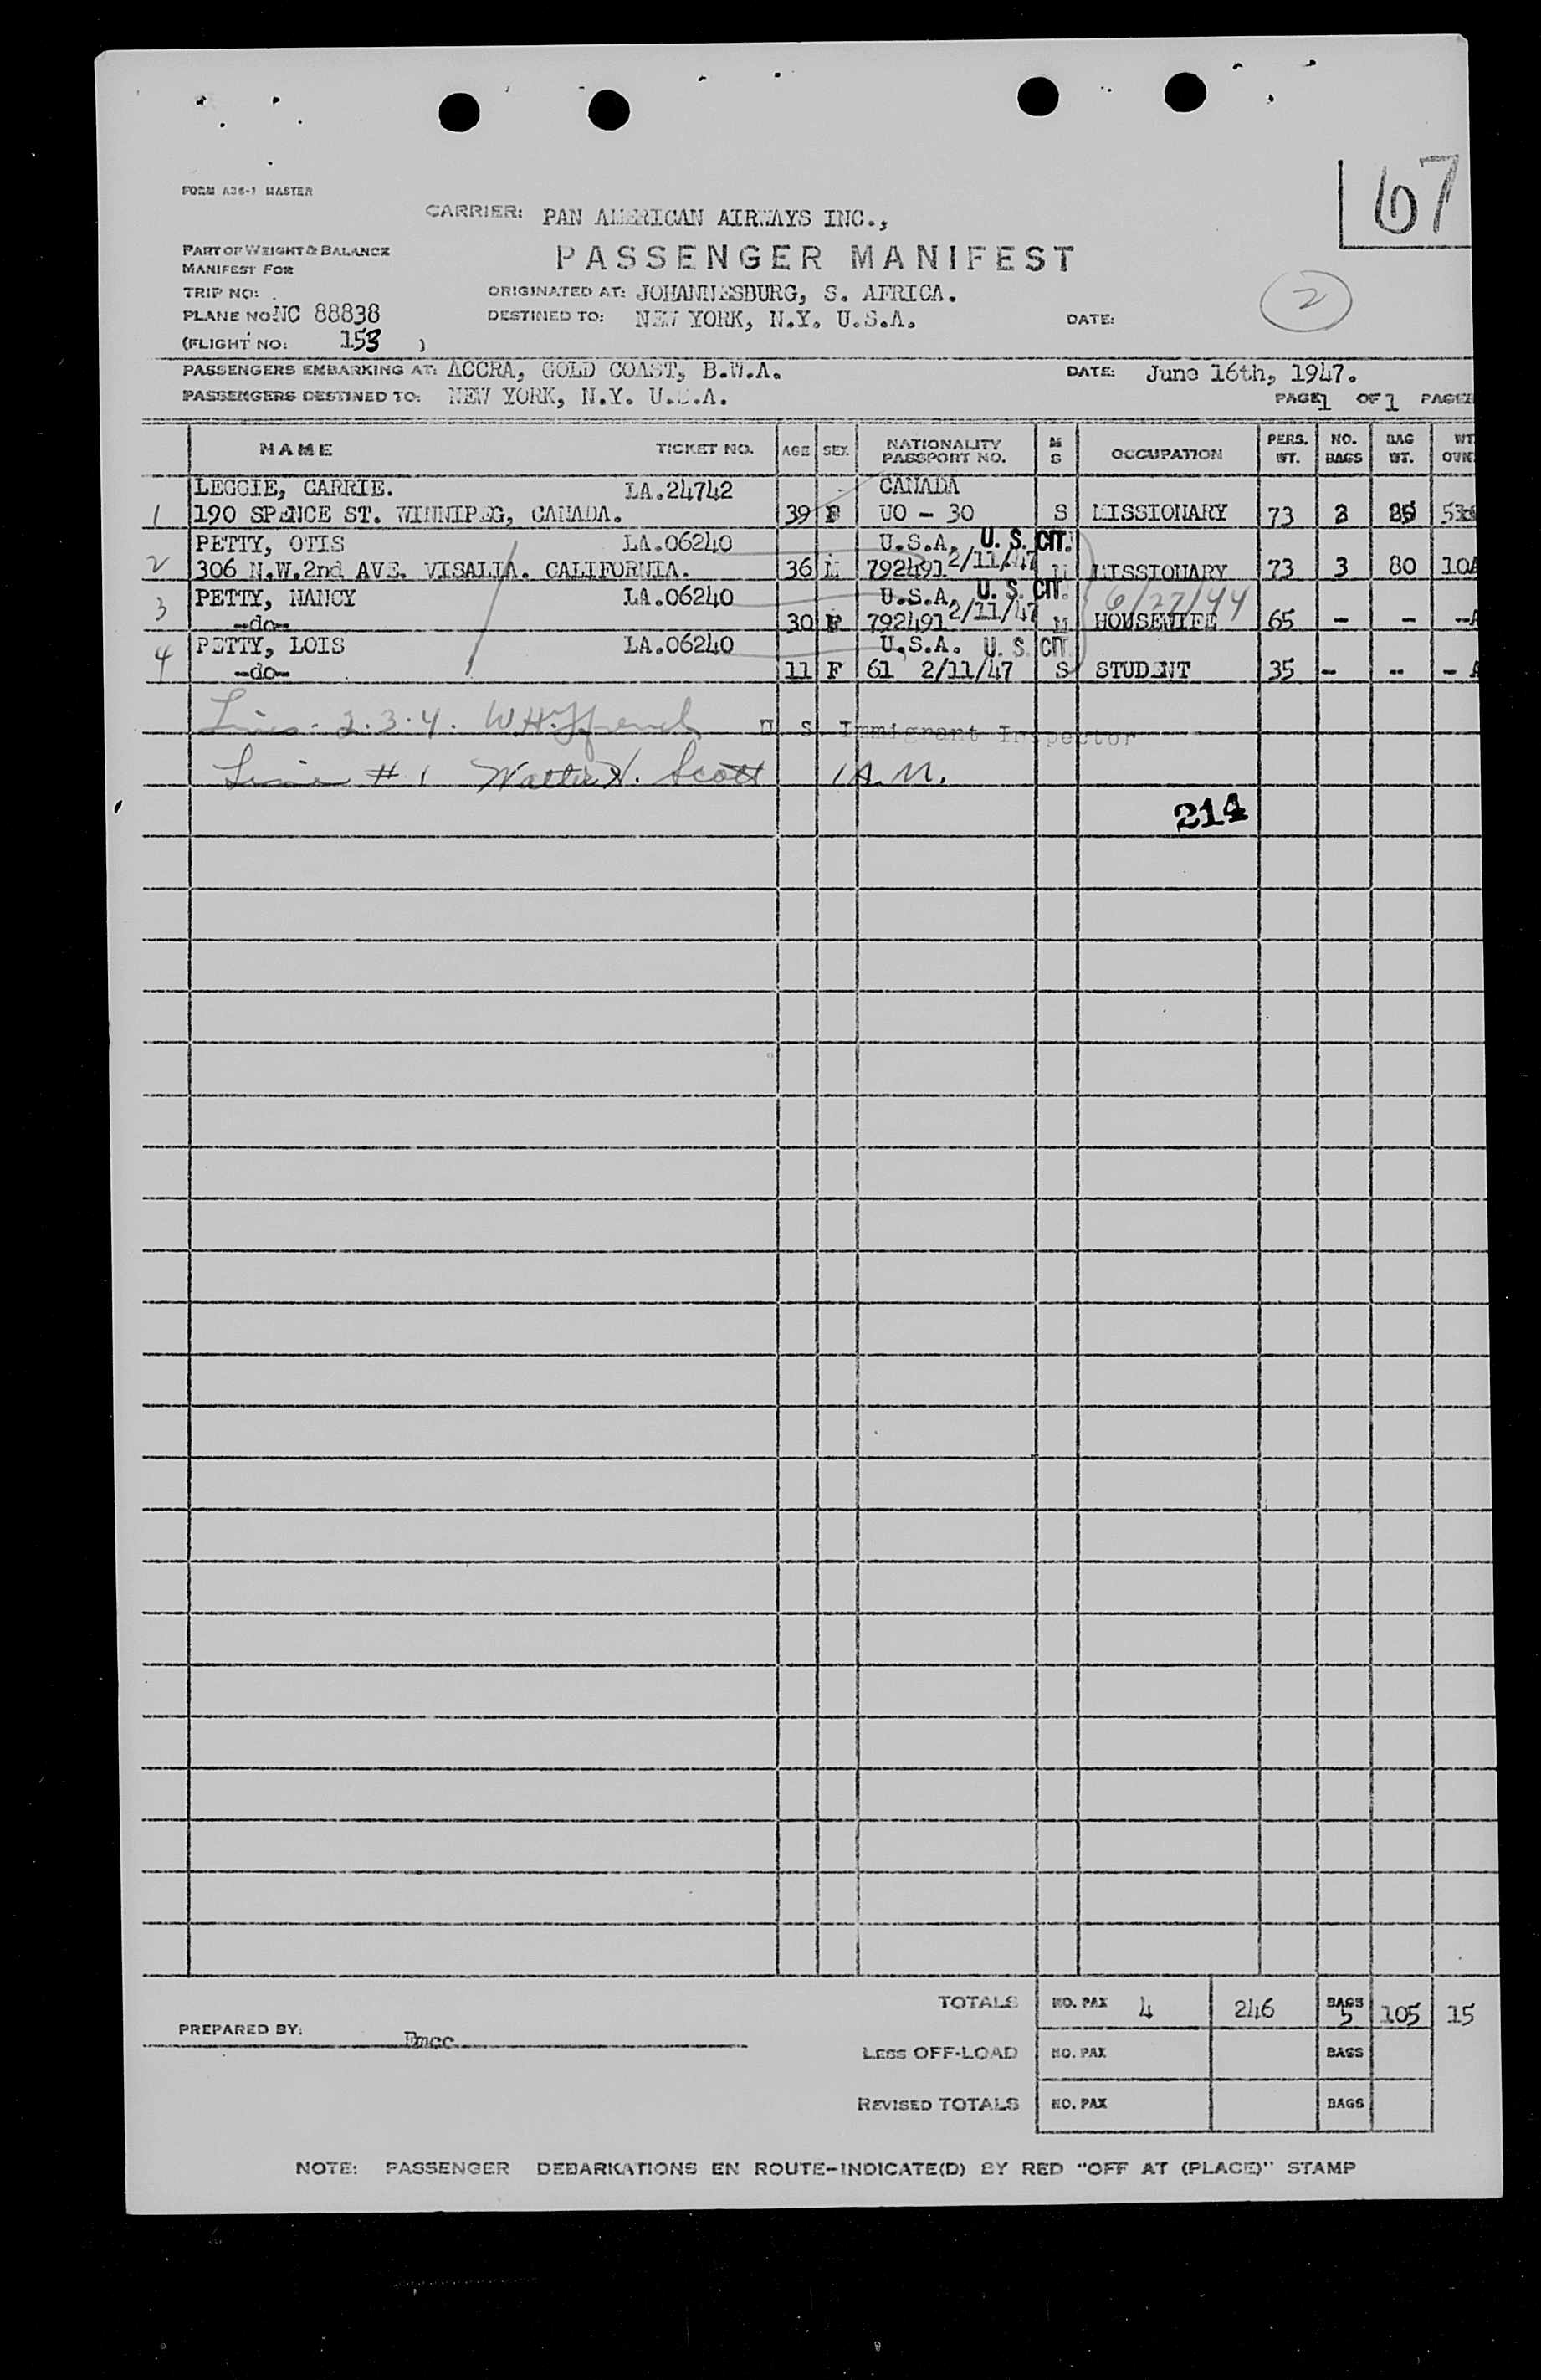 FORM A36-1 MASTER
67
CARRIER: PAN AMERICAN AIRWAYS INC.,
PART OF WEIGHT & BALANCE
MANIFEST FOR
PASSENGER MANIFEST
TRIP NO:
ORIGINATED AT: JOHANNESBURG, S. AFRICA.
2
PLANE NO: NC 88838
DESTINED TO: NEW YORK, N.Y. U.S.A.
DATE:
(FLIGHT NO: 153 )
PASSENGERS EMBARKING AT: ACCRA, GOLD COAST, B.W.A.
DATE: June 16th, 1947.
PASSENGERS DESTINED TO: NEW YORK, N.Y. U.S.A.
PAGE 1 OF 1 PAGE
NAME TICKET NO. AGE SEX NATIONALITY PASSPORT NO. M S OCCUPATION PERS. WT. NO. BAGS BAG WT. WT
LEGGIE, CARRIE. LA.24742 CANADA
1 190 SPENCE ST. WINNIPEG, CANADA. 39 F UO - 30 S MISSIONARY 73 2 25
PETTY, OTIS LA.06240 U.S.A. U. S. CIT.
2 306 N.W.2nd AVE. VISALIA. CALIFORNIA. 36 M 792491 2/11/47 M MISSIONARY 73 3 80 10
PETTY, NANCY LA.06240 U.S.A. U. S. CIT. 6/27/44
3 -do- 30 F 792491 2/11/47 M HOUSEWIFE 65 - - -
PETTY, LOIS LA.06240 U.S.A. U. S. CIT
4 -do- 11 F 61 2/11/47 S STUDENT 35 - - -
Lines - 2.3.4. W.H. U S Immigrant Inspector
Line # 1 Walter H. Scott
214
TOTALS NO. PAX 4 246 BAGS 5 105 15
PREPARED BY:
LESS OFF-LOAD NO. PAX BAGS
REVISED TOTALS NO. PAX BAGS
NOTE: PASSENGER DEBARKATIONS EN ROUTE-INDICATE(D) BY RED "OFF AT (PLACE)" STAMP